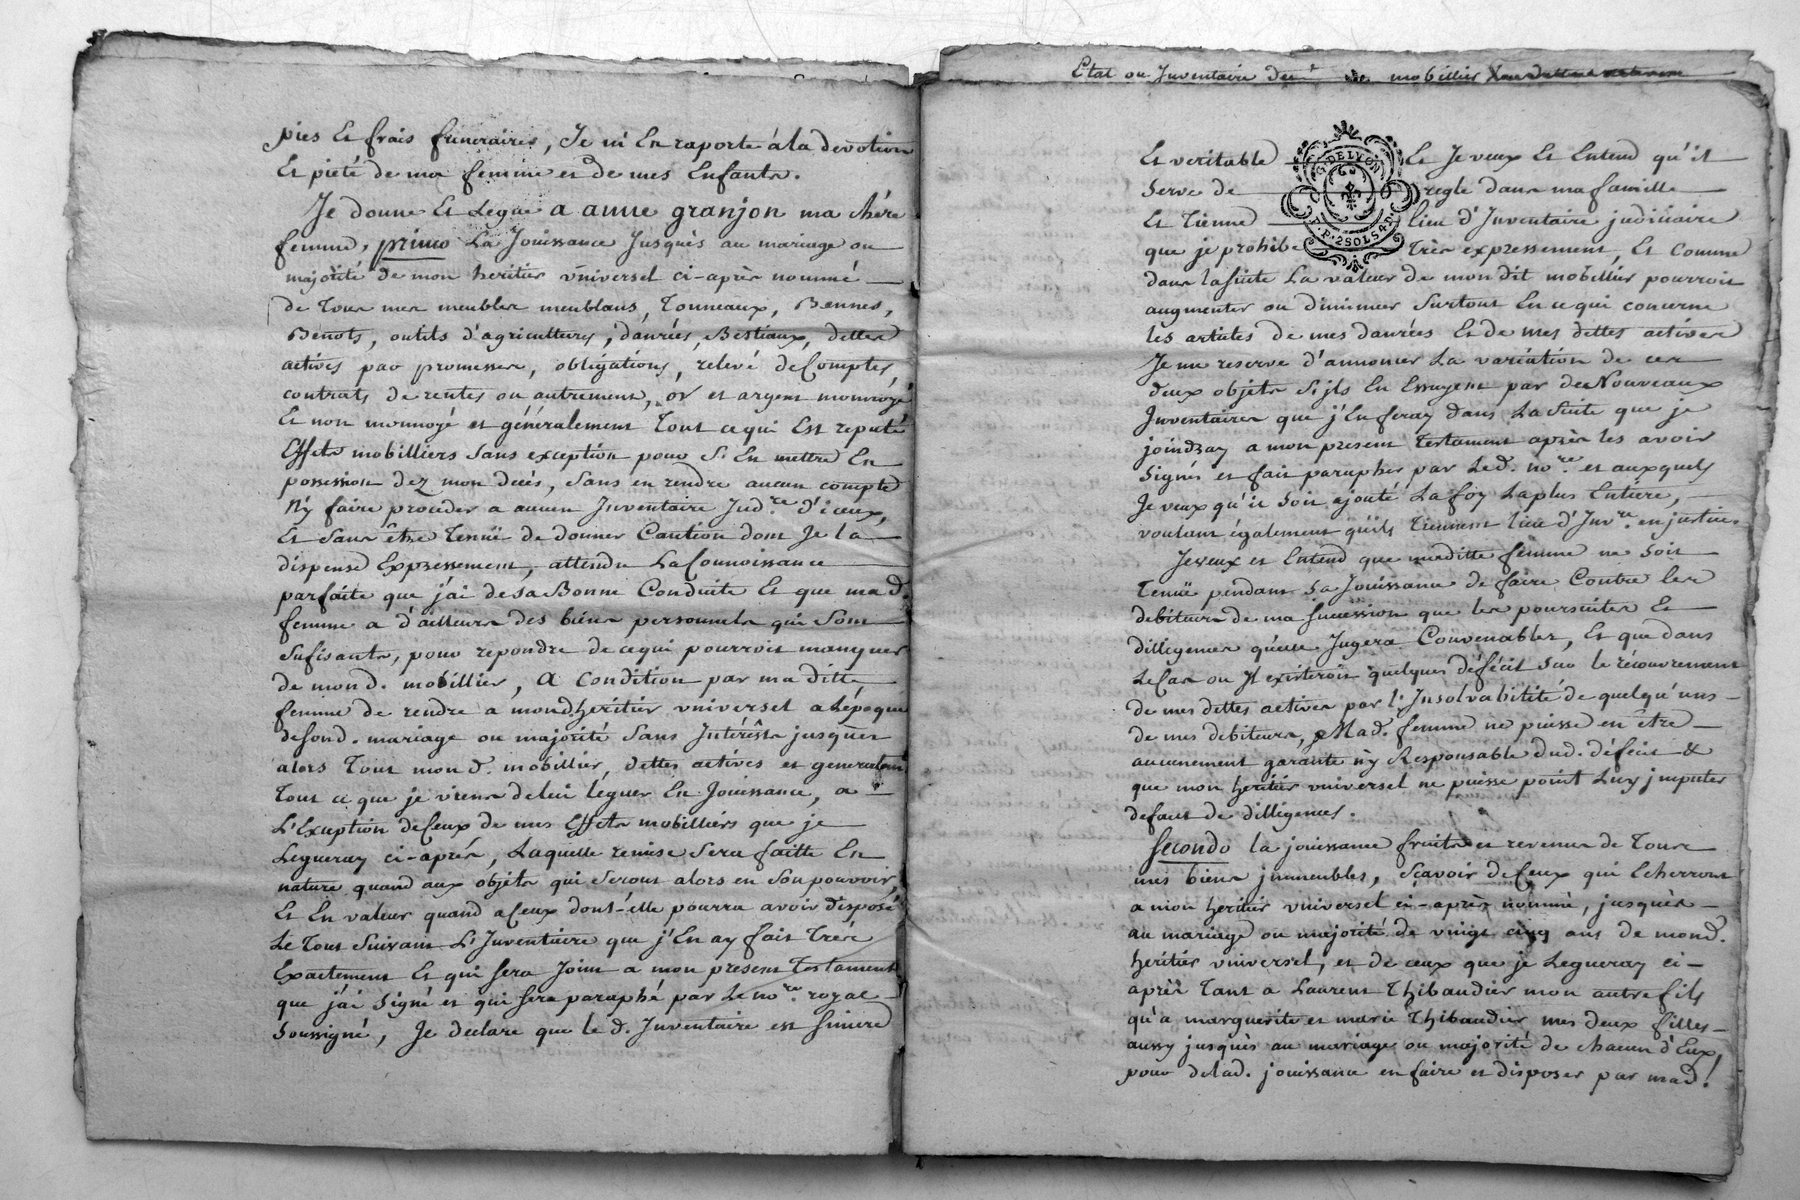 pies Et frais funeraires, Je m'En raporte à la devotion
Et pieté de ma femme et de mes Enfants.
Je donne Et Legue a anne granjon ma chére
femme, primo La Jouissance Jusques au mariage ou
majorité de mon heritier vniversel ci-après nommé
de Tous mes meubles meublans, Tonneaux, Bennes,
Benots, outils d'agriculture, danrées, Bestiaux, dettes
actives par promesses, obligations, relevé de Comptes,
contrats de rentes ou autrement, or et argent monnoyé
Et non monnoyé et généralement Tout ce qui Est reputé
Effets mobilliers Sans exception pour S'En mettre En
possession dez mon decés, Sans en rendre aucun compte
N'y faire proceder a aucun Inventaire Jud.re d'iceux,
Et Sans être Tenuë de donner Caution dont Je la
dispense Expressement, attendu La Connoissance
parfaite que j'ai de sa Bonne Conduite Et que mad.
femme a d'ailleurs des biens personnels qui Sont
Sufisants, pour repondre de ce qui pourroit manquer
de mond. mobillier, a condition par ma ditte
femme de rendre a mond heritier vniversel a L'époque
de sond. mariage ou majorité Sans Intérêts jusques
alors Tout mond. mobillier, dettes actives et generalem.t
Tout ce que je viens de lui leguer En Jouissance, a
L'Exception de Ceux de mes Effets mobilliers que je
Legueray ci-après, Laquelle remise Sera faitte En
nature quand aux objets qui Seront alors en Son pouvoir,
Et En valeur quand a Ceux dont-elle pourra avoir disposé
Le Tout Suivant L'Inventaire que j'En ay fait Trés
Exactement Et qui Sera Joint a mon present Testament
que j'ai Signé et qui Sera paraphé par Le no.re royal
Soussigné, Je declare que le d. Inventaire est Sincere
Etat ou Inventaire de mobillier
Et veritable Et Je veux Et Entend qu'il
G. DE LYON
Serve de regle dans ma famille
Et Tienne lieu d'Inventaire judiciaire
P. 2 SOLS 4 D.
que je prohibe Très expressement, Et comme
dans la Suite La valeur de mon dit mobillier pourroit
augmenter ou diminuer Surtout En ce qui concerne
les articles de mes danrées Et de mes dettes actives
Je me reserve d'annoncer La variation de ces
deux objets S'ils En Essuyent par de Nouveaux
Inventaires que j'En feray dans La Suite que je
joindray a mon present Testament après les avoir
Signés et fait parapher par Le d. no.re et auxquels
Je veux qu'il Soit ajouté La foy La plus Entiere,
voulant également qu'ils Tiennent lieu d'Inv.re en justice.
Je veux et Entend que maditte femme ne Soit
Tenuë pendant Sa Jouissance de faire Contre les
debiteurs de ma Succession que les poursuites Et
dilligences qu'elle Jugera Convenables, Et que dans
Le Cas ou Il existeroit quelques déficit Sur le récouvrement
de mes dettes actives par l'Insolvabilité de quelqu'uns
de mes debiteurs, Mad. femme ne puisse en être
aucunement garante n'y Responsable dud. déficit &
que mon heritier vniversel ne puisse point Luy imputer
defaut de dilligences.
Secondo la jouissance fruits et revenus de Tous
mes biens immeubles, Sçavoir de Ceux qui Echerront
a mon heritier vniversel ci-après nommé, jusques
au mariage ou majorité de vingt cinq ans de mond.
heritier vniversel, et de ceux que je Legueray ci-
après Tant a Laurent Thibaudier mon autre fils
qu'a marguerite et marie Thibaudier mes deux filles
aussy jusques au mariage ou majorité de chacun d'Eux
pour de lad. jouissance en faire et disposer par mad.